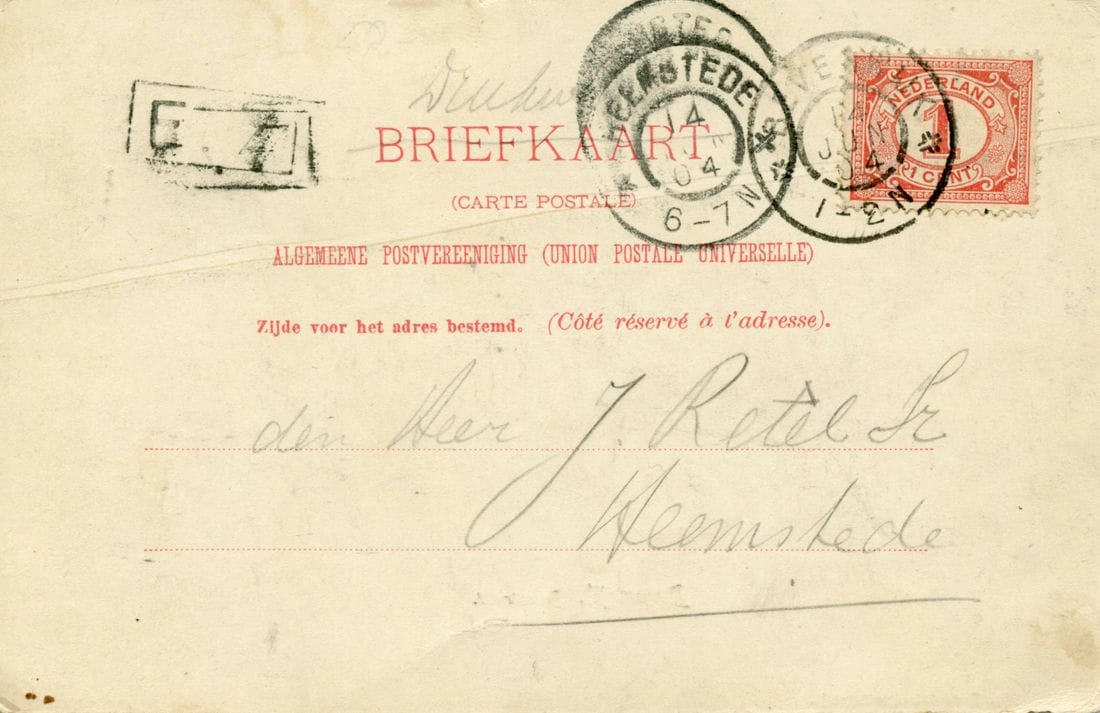 HEEMSTEDE
14 JUN 04
6-7N
14 JUN 04
1-2N
NEDERLAND
1
1 CENT
BRIEFKAART
(CARTE POSTALE)
ALGEMEENE POSTVEREENIGING (UNION POSTALE UNIVERSELLE)
Zijde voor het adres bestemd. (Côté réservé à l'adresse).
den Heer J. Retel Sr
Heemstede